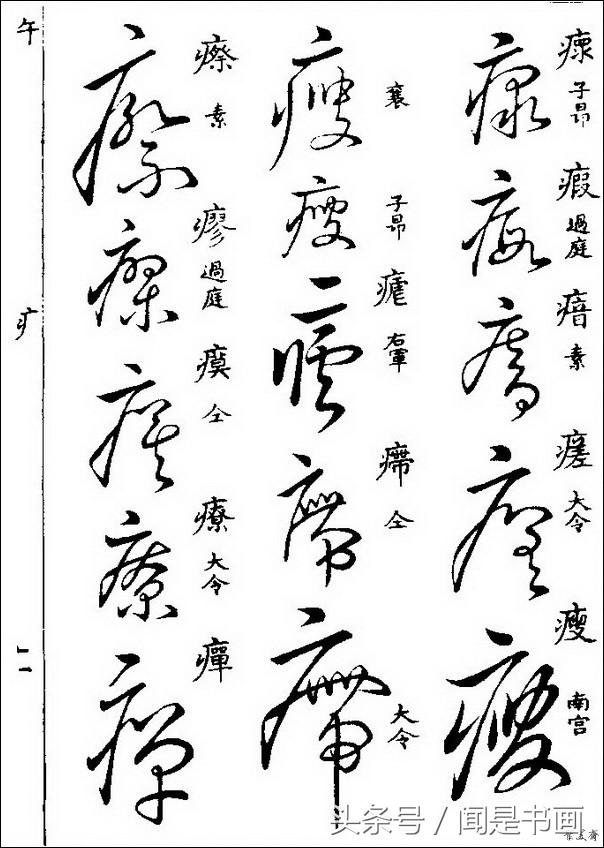 子昂
瘕 過庭
瘖 素
瘥 大令
瘦 南宫
襄
子昂
瘧 右軍
仝
大令
瘵 素
瘳 過庭
瘼 仝
療 大令
癉
午
疒
头条号 / 闻是书画